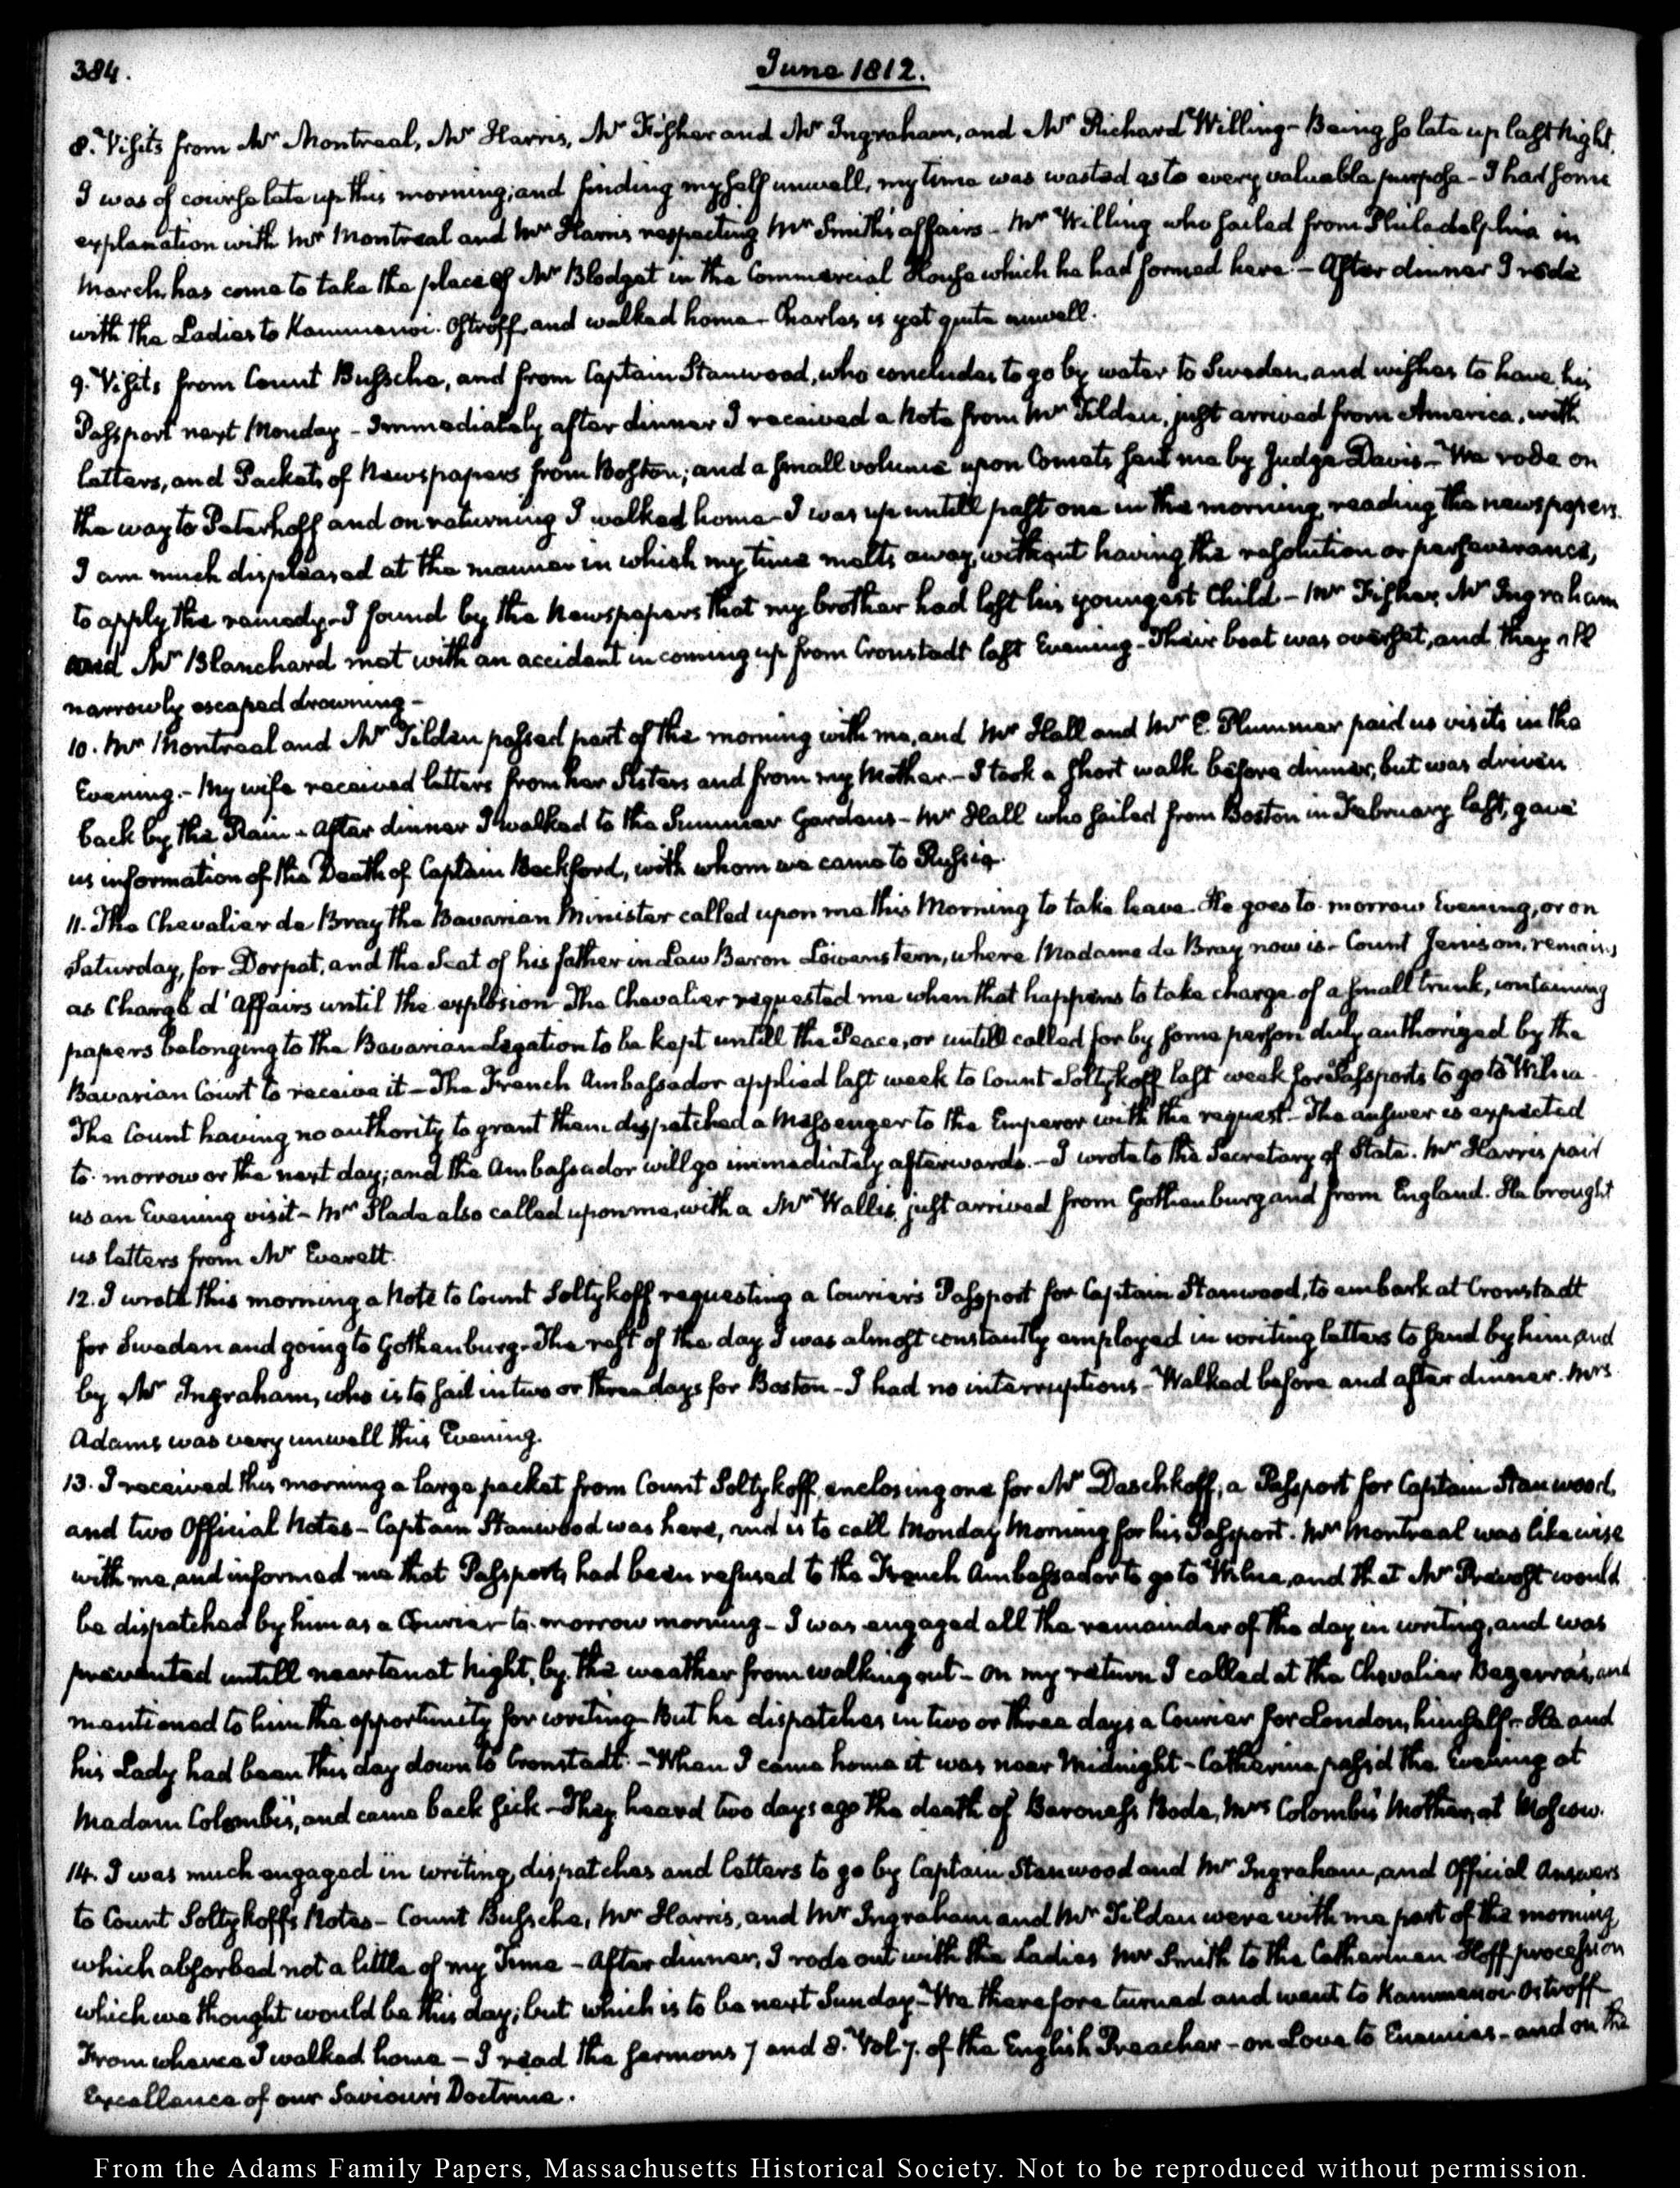 384.
June 1812.
8. Visits from Mr Montreal, Mr Harris, Mr Fisher and Mr Ingraham, and Mr Richard Willing – Being so late up last Night,
I was of course late up this morning; and finding myself unwell, my time was wasted as to every valuable purpose – I had some
explanation with Mr Montreal and Mr Harris respecting Mr Smith's affairs – Mr Willing who sailed from Philadelphia in
March, has come to take the place of Mr Blodget in the Commercial House which he had formed here. – After dinner I rode
with the Ladies to Kammenoi-Ostroff, and walked home – Charles is yet quite unwell.
9. Visits from Count Bussche, and from Captain Stanwood, who concludes to go by water to Sweden, and wishes to have his
Passport next Monday – Immediately after dinner I received a Note from Mr Tilden, just arrived from America, with
letters, and Packets of Newspapers from Boston; and a small volume upon Comets sent me by Judge Davis – We rode on
the way to Peterhoff and on returning I walked home – I was up untill past one in the morning, reading the newspapers.
I am much displeased at the manner in which my time melts away, without having the resolution or perseverance,
to apply the remedy – I found by the Newspapers that my brother had lost his youngest Child – Mr Fisher, Mr Ingraham
and Mr Blanchard met with an accident in coming up from Cronstadt last Evening – Their boat was overset, and they all
narrowly escaped drowning –
10. Mr Montreal and Mr Tilden passed part of the morning with me, and Mr Hall and Mr E. Plummer paid us visits in the
Evening. – My wife received letters from her Sisters and from my Mother. – I took a short walk before dinner, but was driven
back by the Rain – After dinner I walked to the Summer Gardens – Mr Hall who sailed from Boston in February last, gave
us information of the Death of Captain Beckford, with whom we came to Russia.
11. The Chevalier de Bray the Bavarian Minister called upon me this Morning to take leave. He goes to-morrow Evening, or on
Saturday, for Dorpat, and the Seat of his father in Law Baron Löwenstern, where Madame de Bray now is – Count Jenison, remains
as Chargé d'Affairs until the explosion – The Chevalier requested me when that happens to take charge of a small trunk, containing
papers belonging to the Bavarian Legation to be kept untill the Peace, or untill called for by some person duly authorized by the
Bavarian Court to receive it – The French Ambassador applied last week to Count Soltykoff last week for Passports to go to Wilna –
The Count having no authority to grant them dispatched a Messenger to the Emperor with the request – The answer is expected
to-morrow or the next day; and the Ambassador will go immediately afterwards. – I wrote to the Secretary of State. Mr Harris paid
us an Evening visit – Mr Slade also called upon me, with a Mr Wallis, just arrived from Gothenburg and from England. He brought
us letters from Mr Everett.
12. I wrote this morning a Note to Count Soltykoff requesting a Courier's Passport for Captain Stanwood, to embark at Cronstadt
for Sweden and going to Gothenburg – The rest of the day I was almost constantly employed in writing letters to send by him and
by Mr Ingraham, who is to sail in two or three days for Boston – I had no interruptions – Walked before and after dinner. Mrs
Adams was very unwell this Evening.
13. I received this morning a large packet from Count Soltykoff, enclosing one for Mr Daschkoff, a Passport for Captain Stanwood,
and two Official Notes – Captain Stanwood was here, and is to call Monday Morning for his Passport. Mr Montreal was likewise
with me, and informed me that Passports had been refused to the French Ambassador to go to Wilna, and that Mr Prevost would
be dispatched by him as a Courier to-morrow morning – I was engaged all the remainder of the day in writing, and was
prevented untill near ten at Night, by the weather from walking out – On my return I called at the Chevalier Bezerra's, and
mentioned to him the opportunity for writing – But he dispatches in two or three days a Courier for London, himself – He and
his Lady had been this day down to Cronstadt. – When I came home it was near Midnight – Catherine pass'd the Evening at
Madam Colombi's, and came back sick – They heard two days ago the death of Baroness Bode, Mrs Colombi's Mother, at Moscow.
14. I was much engaged in writing dispatches and letters to go by Captain Stanwood and Mr Ingraham, and Official Answers
to Count Soltykoff's Notes – Count Bussche, Mr Harris, and Mr Ingraham and Mr Tilden were with me part of the morning,
which absorbed not a little of my Time – After dinner, I rode out with the Ladies Mr Smith to the Catharinen-Hoff procession
which we thought would be this day; but which is to be next Sunday – We therefore turned and went to Kammenoi-Ostroff
From whence I walked home – I read the sermons 7 and 8. Vol. 7. of the English Preacher – on Love to Enemies – and on the
Excellence of our Saviour's Doctrine.
From the Adams Family Papers, Massachusetts Historical Society. Not to be reproduced without permission.